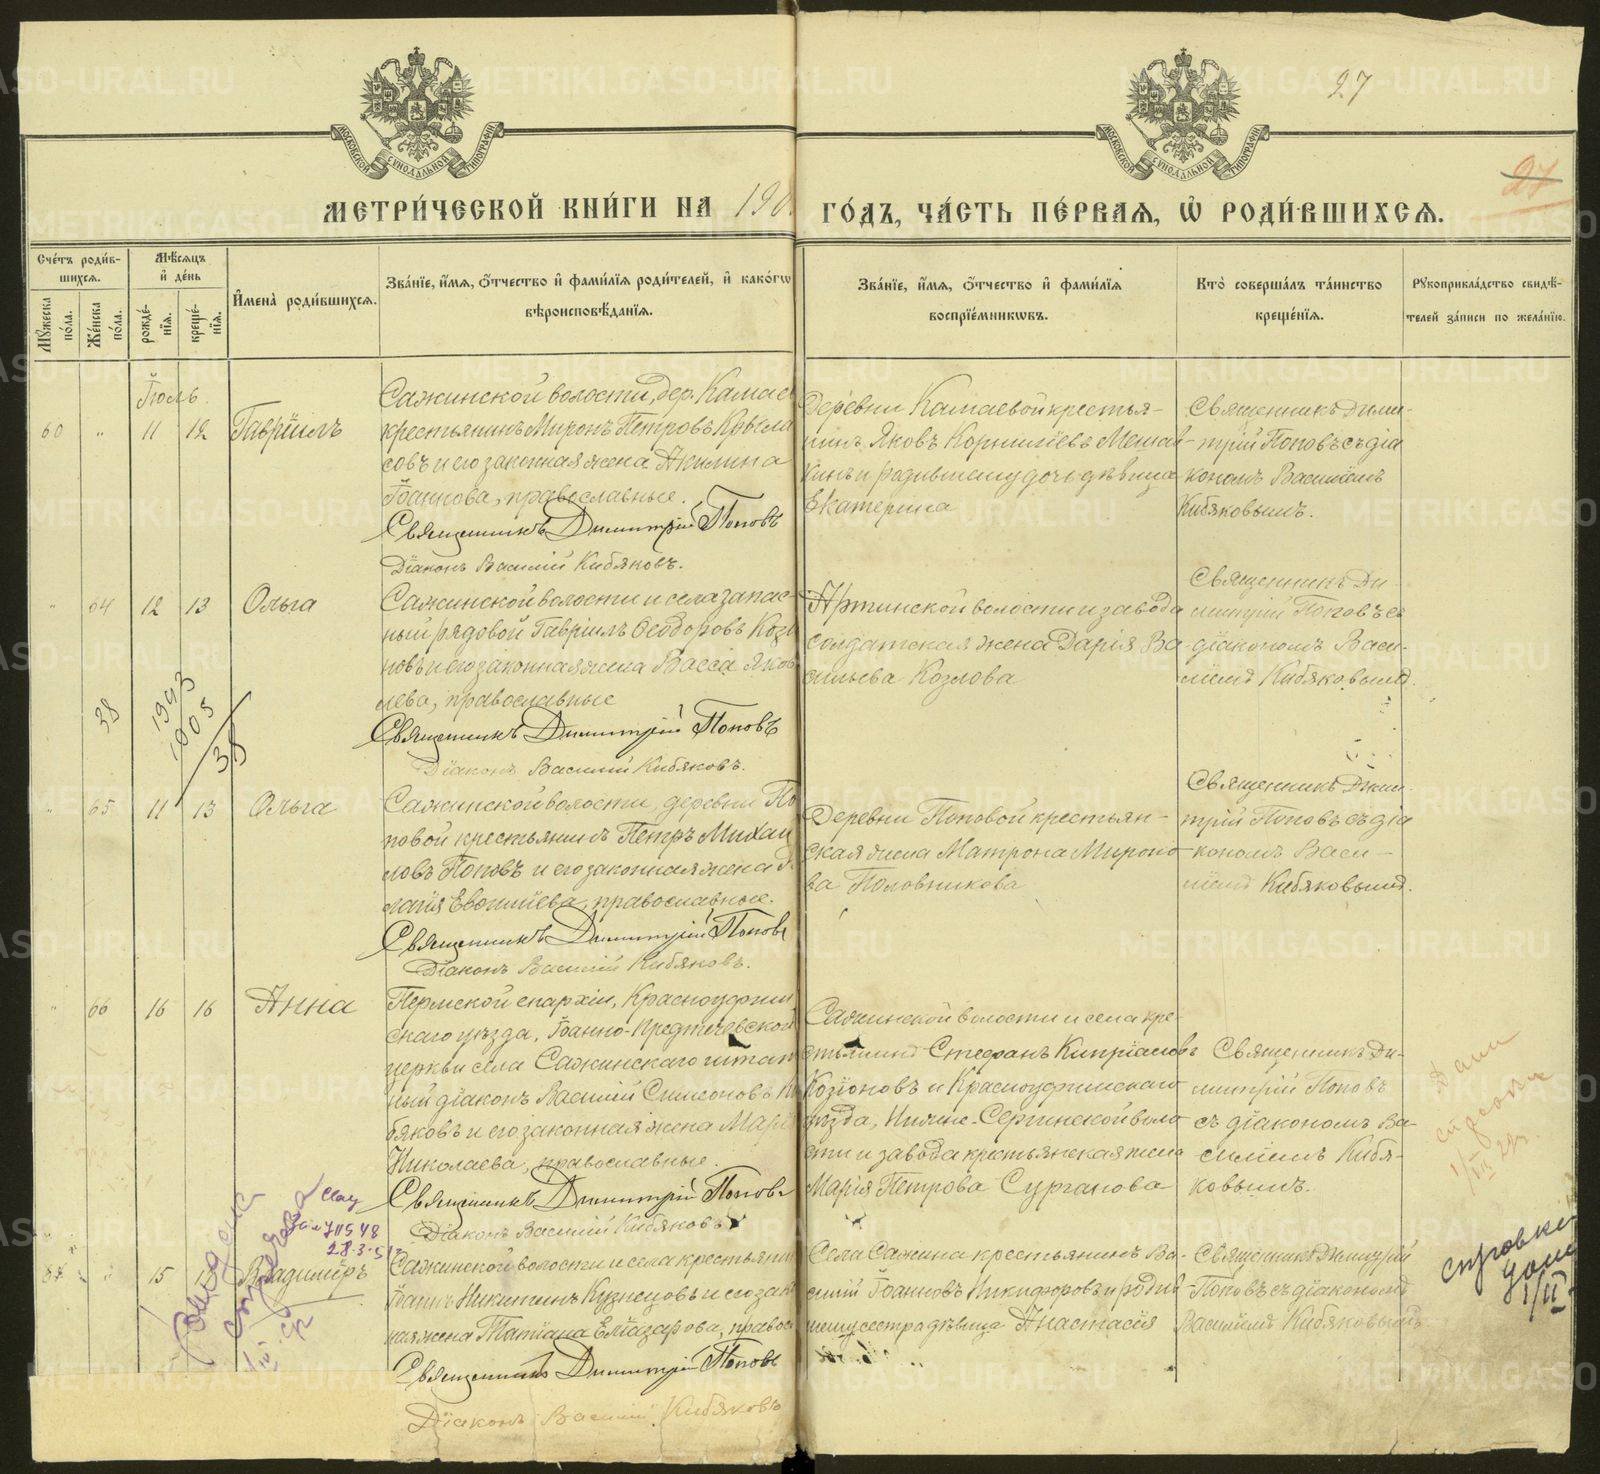 27
27
МОСКОВСКОЙ СѴНОДАЛЬНОЙ ТИПОГРАФІИ
МОСКОВСКОЙ СѴНОДАЛЬНОЙ ТИПОГРАФІИ
МЕТРИ́ЧЕСКОЙ КНИ́ГИ НА 190
ГО́ДЪ, ЧА́СТЬ ПЕ́РВАѦ, Ѡ҆ РОДИ́ВШИХСѦ.
Сче́тъ роди́в-
шихсѧ.
Мꙋжеска по́ла.
Же́нска по́ла.
Мѣ́сѧцъ и҆ де́нь
рожде́-
нїѧ.
креще́-
нїѧ.
И҆мена̀ роди́вшихсѧ.
Зва́нїе, и҆́мѧ, ѻ҆́тчество и҆ фами́лїѧ роди́телей, и҆ како́гѡ
вѣроисповѣ́данїѧ.
Зва́нїе, и҆́мѧ, ѻ҆́тчество и҆ фами́лїѧ
воспрїе́мникѡвъ.
Кто̀ соверша́лъ та́инство
креще́нїѧ.
Рꙋкоприкла́дство свидѣ́-
телей за́писи по жела́нїю.
Іюль.
60 " 11 12 Гавріилъ
Сажинской волости, дер. Камаев
крестьянинъ Миронъ Петровъ Крысла
совъ и его законная жена Акилина
Іоаннова, православные.
Священникъ Димитрій Поповъ
Діаконъ Василій Кибяковъ.
Деревни Камаевой крестья-
нинъ Яковъ Корнилїевъ Меньш
кинъ и родившему дочь дѣвица
Екатерина
Священникъ Дими-
трій Поповъ съ діа
кономъ Василіемъ
Кибяковымъ.
" 64 12 13 Ольга
Сажинской волости и села запас-
ный рядовой Гавріилъ Ѳеодоровъ Козл
новъ и его законная жена Васса Яков
лева, православные
Священникъ Димитрій Поповъ
Діаконъ Василій Кибяковъ.
Артинской волости и завода
солдатская жена Дарія Ва-
сильева Козлова
Священникъ Ди-
митрій Поповъ съ
діакономъ Васи-
ліемъ Кибяковымъ.
38
1943
1905
38
" 65 11 13 Ольга
Сажинской волости, деревни По
повой крестьянинъ Петръ Михаи
ловъ Поповъ и его законная жена
лагія Евѳиміева, православные.
Священникъ Димитрій Поповъ
Діаконъ Василій Кибяковъ.
Деревни Поповой крестьян-
ская жена Матрона Мироно
ва Половникова
Священникъ Дими
трій Поповъ съ діа
кономъ Васи-
ліемъ Кибяковымъ.
" 66 16 16 Анна
Пермской епархіи, Красноуфим
скаго уѣзда, Іоанно-Предтечевской
церкви села Сажинскаго штат
ный діаконъ Василій Симеоновъ Ки
бяковъ и его законная жена Марі
Николаева, православные.
Священникъ Димитрій Поповъ
Діаконъ Василій Кибяковъ
Сажинской волости и села кре-
стьянинъ Стефанъ Кипріановъ
Козіоновъ и Красноуфимскаго
уѣзда, Нижне-Сергинской воло
сти и завода крестьянская жена
Марія Петрова Сурганова
Священникъ Ди-
митрій Поповъ
съ діакономъ Ва-
силіемъ Кибя-
ковымъ.
28.3.51
15 Владиміръ
Сажинской волости и села крестьяни
Іоаннъ Никитинъ Кузнецовъ и его зако
ная жена Татіана Еліазарова, правос
Священникъ Димитрій Поповъ
Діаконъ Василій Кибяковъ
Села Сажина крестьянинъ Ва-
силій Іоанновъ Никифоровъ и родив
шему сестра дѣвица Анастасія
Священникъ Димитрій
Поповъ съ діакономъ
Василіемъ Кибяковымъ
METRIKI.GASO-URAL.RU